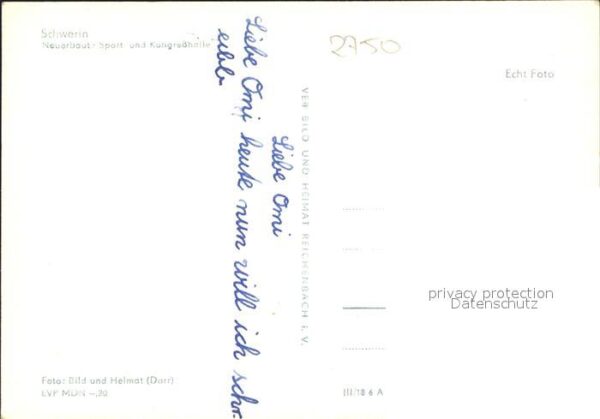 Schwerin
Neuerbaute Sport- und Kongreßhalle
2750
Echt Foto
Liebe Omi
Liebe Omi heute nun will ich schr-
eibb
VEB BILD UND HEIMAT REICHENBACH i. V.
privacy protection
Datenschutz
Foto: Bild und Heimat (Darr)
EVP MDN -,20
III/18 6 A